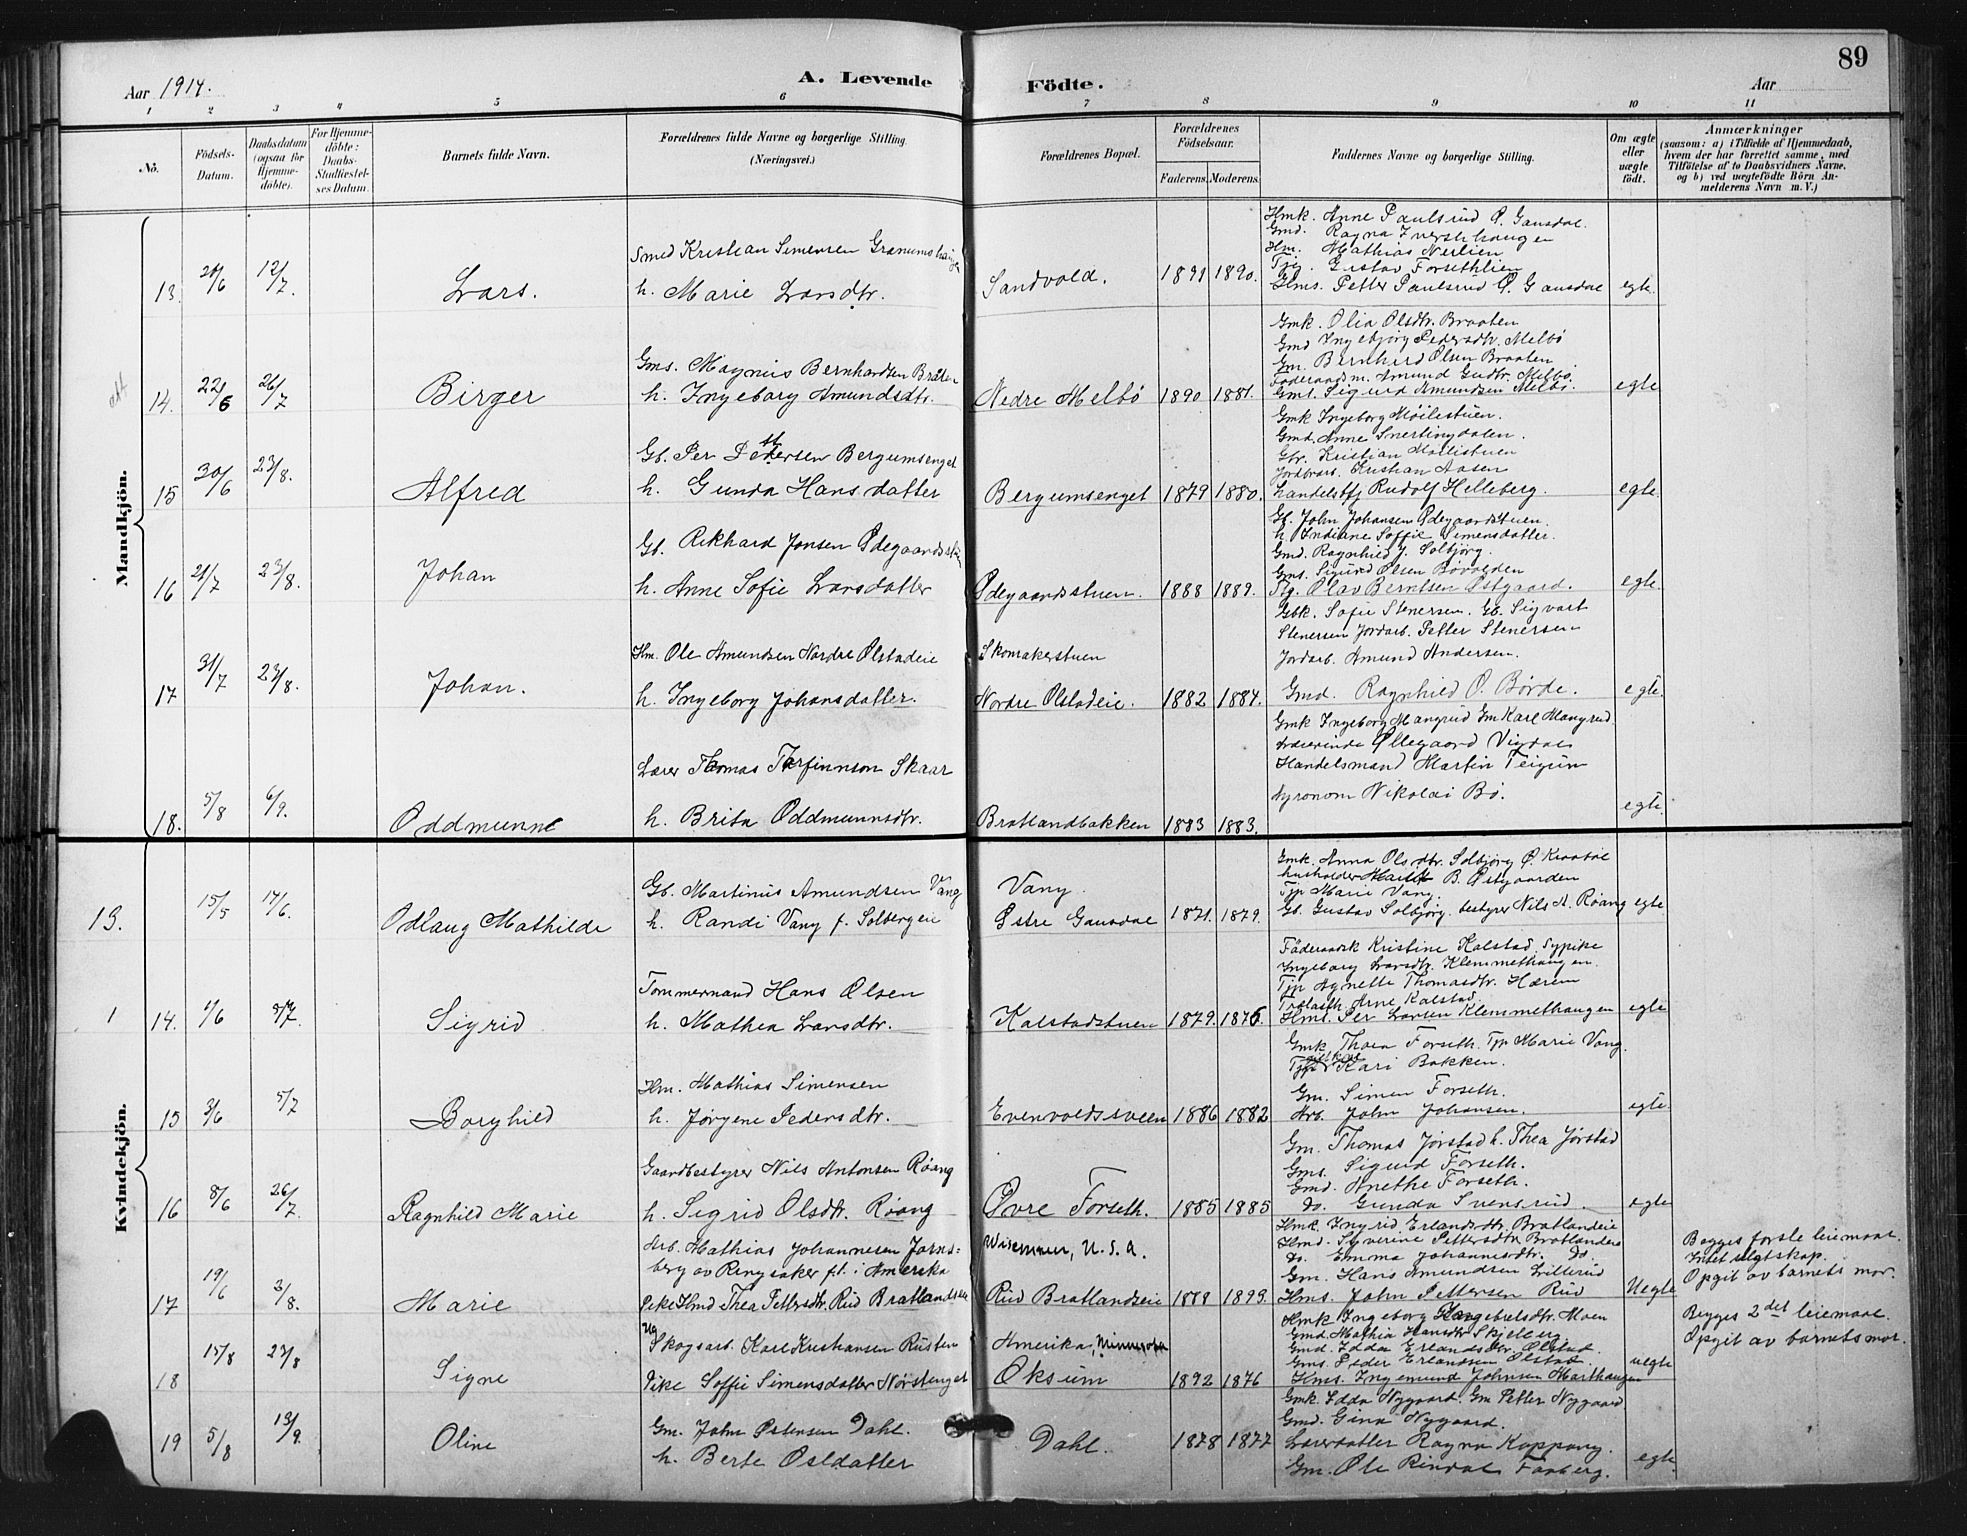 89
Aar 1914.
A. Levende
Födte.
Aar
1 2 3 4 5 6 7 8 9 10 11
No.
Födsels-Datum.
Daabsdatum (ogsaa for Hjemme-döbte).
For Hjemme-döbte: Daabs-Stadfæstel-ses Datum.
Barnets fulde Navn.
Forældrenes fulde Navne og borgerlige Stilling. (Næringsvei.)
Forældrenes Bopæl.
Forældrenes Födselsaar.
Faderens. Moderens.
Faddernes Navne og borgerlige Stilling.
Om ægte eller uægte födt.
Anmærkninger
(saasom: a) i Tilfælde af Hjemmedaab,
hvem der har forrettet samme, med
Tilföielse af to Daabsvidners Navne,
og b) ved uægtefödte Börn An-
melderens Navn m. V.)
Mandkjön.
13. 20/6 12/7. Lars.
Smed Kristian Simensen Granumshaugen
h. Marie Larsdtr.
Sandvold. 1891 1890.
Hmk. Anne Paulsrud Ø. Gausdal.
Gmd. Ragna Iverslihaugen
Hm. Mathias Nerlien
Tjg. Gustav Forsethlien
Hms. Petter Paulsrud Ø. Gausdal
egte.
14. 22/6 26/7 Birger
Gms. Magnus Bernhardsen Braaten
h. Ingeborg Amundsdtr.
Nedre Melbö 1890 1881.
Gmk. Olia Olsdtr. Braaten
Gmd Ingebjörg Pedersdtr. Melbö
Gm. Bernhard Olsen Braaten
Föderaadsm. Amund Gudtr. Melbö.
Gms. Sigurd Amundsen Melbö.
egte
15 30/6 23/8. Alfred
Gb. Per Petersen Bergumsenget
h. Gunda Hansdatter
Bergumsenget 1879 1880.
Gmk Ingeborg Möilestuen.
Gmd. Anne Snertingdalen.
Gbr. Kristian Möilistuen
Jordbrarb. Kristian Aasen
Handelsbtj Rudolf Helleberg.
egte.
16 21/7 23/8. Johan
Gb. Rikhard Jonsen Ødegaardsstuen
h. Anne Sofie Larsdatter
Ødegaardsstuen. 1888 1889.
Gb. John Johansen Ødegaardstuen.
h. Indiane Soffie Simensdatter.
Gmd. Ragnhild J. Solbjörg.
Gms. Sigurd Olsen Bövolden
Tjg. Olav Berntsen Østgaard.
egte.
17 31/7 23/8. Johan.
Hm. Ole Amundsen Nordre Ølstadeie
h. Ingeborg Johansdatter.
Skomakerstuen
Nordre Ølstadeie. 1882 1884.
Gbk. Sofie Stenersen. Gb. Sigvart
Stenersen Jordarb. Petter Stenersen
Jordarb. Amund Andersen.
Gmd. Ragnhild O. Börde.
egte.
18. 5/8 6/9. Oddmunne
Lærer Thomas Thorfinnson Skaar
h. Brita Oddmunnsdtr.
Bratlandbakken 1883 1883.
Gmk Ingeborg Mangrud Gm Karl Mangrud
Lærerinde Øllegaard Vigdal
Handelsmand Martin Teigum
Agronom Nikolai Bö.
egte.
Kvindekjön.
13. 15/5 14/6. Odlaug Mathilde
Gb. Martinus Amundsen Vang
h. Randi Vang f. Solbergeie
Vang.
Østre Gausdal 1871. 1879.
Gmk. Anna Olsdtr. Solbjörg Ø. Kraabøl
husholder Marit B. Østgaarden
Tjp Marie Vang.
Gb. Gustav Solbjörg. bestyrer Nils A. Röang
egte
1 14. 1/6 5/7. Sigrid
Tømmermand Hans Olsen
h. Mathea Larsdtr.
Kalstadstuen 1879. 1876.
Föderaadsk Kristine Kalstad. Sypike
Ingeborg Larsdtr. Klemmethaugen.
Tjp Agnette Thomasdtr. Hærem
Arne Kalstad.
Hms. Per Larsen Klemmethaugen
egte
15 3/6 5/7 Borghild
Hm. Mathias Simensen
h. Jørgine Pedersdtr.
Evenvoldssveen 1886 1882
Gmk Thora Forseth. Tjp Marie Vang.
Kari Bakken.
Gm. Simen Forseth.
Arb. John Johansen.
egte.
16 8/6 26/7. Ragnhild Marie
Gaardbestyrer Nils Antonsen Röang
h. Sigrid Olsdtr. Röang
Øvre Forseth. 1885 1885
Gm. Thomas Jørstad h. Thea Jørstad
Gms. Sigurd Forseth.
Gmd. Anethe Forseth.
do. Gunda Svensrud.
egte
17 19/6 2/8. Marie
Arb. Mathias Johannesen Jarns-
berg av Ringsaker f.t. i Amerika
Pike Hmd Thea Pettersdtr. Rud Bratlandseie
U.S.A.
Rud Bratlandseie 1888 1893.
Hmk. Ingrid Erlandsdtr. Bratlandeie
Hmd. Syverine Pettersdtr. Bratlandeie
do. Emma Johannesdtr. do.
Gm. Hans Amundsen Lillerud
Hms. John Pettersen Rud
Uegte
Begges første leiemaal.
Intet slegtskap.
Opgit av barnets mor.
18 15/8 23/8 Signe
Ug Skogsarb. Karl Kristiansen Rusten
Pike Soffie Simensdatter Nörstenget
Amerika, Minnesota
Oksum 1892 1876
Hmk Ingeborg Engebretsdtr. Moen
Gmd. Mathia Hansdtr. Skjeberg.
Gmd. Edda Erlandsdtr. Ølstad.
Gms. Peder Erlandsen Ølstad.
Hms. Ingemund Johnsen Marthaugen
uegte
Begges 2det leiemaal.
Opgit av barnets mor.
19 5/8 13/9. Oline
Gm. John Østensen Dahl.
h. Berte Osldatter
Dahl. 1878 1877
Gmk. Edda Nygaard. Gm Petter Nygaard
Gmd. Gina Nygaard.
Lærerdatter Ragna Kappang.
Gm. Ole Rindal Faaberg.
egte.